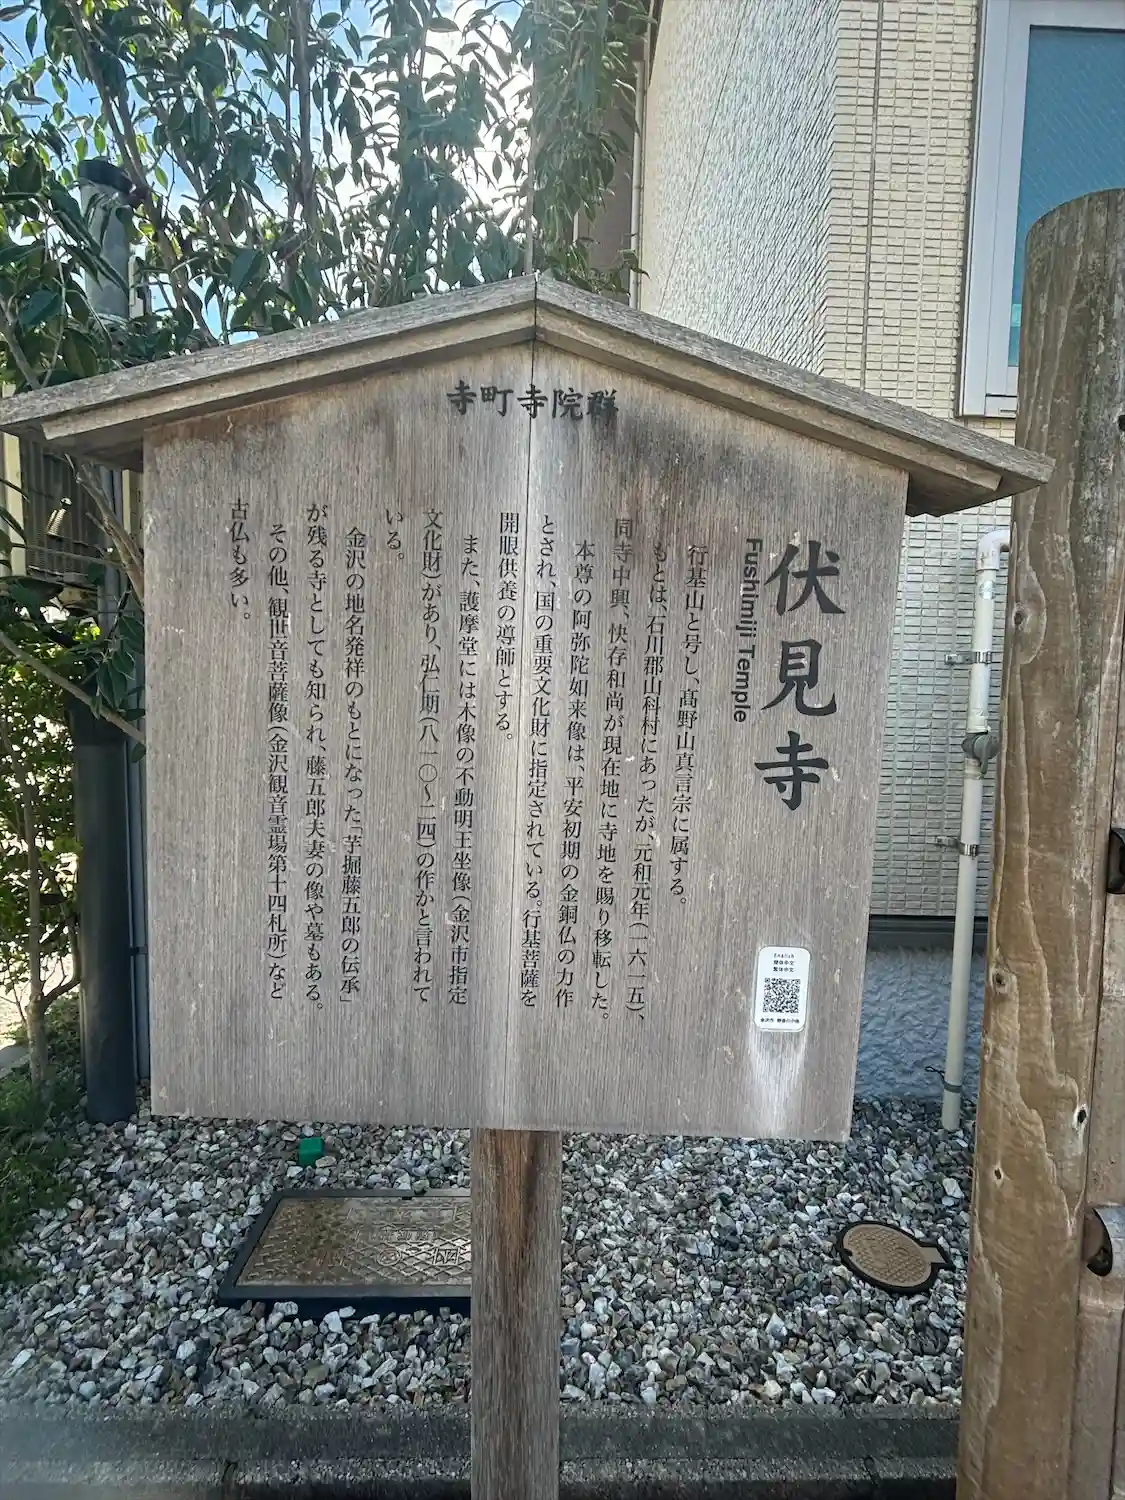 寺町寺院群
伏見寺
Fushimiji Temple
行基山と号し、高野山真言宗に属する。
もとは、石川郡山科村にあったが、元和元年(一六一五)、
同寺中興、快存和尚が現在地に寺地を賜り移転した。
本尊の阿弥陀如来像は、平安初期の金銅仏の力作
とされ、国の重要文化財に指定されている。行基菩薩を
開眼供養の導師とする。
また、護摩堂には木像の不動明王坐像(金沢市指定
文化財)があり、弘仁期(八一〇〜二四)の作かと言われて
いる。
金沢の地名発祥のもとになった「芋掘藤五郎の伝承」
が残る寺としても知られ、藤五郎夫妻の像や墓もある。
その他、観世音菩薩像(金沢観音霊場第十四札所)など
古仏も多い。
English
简体中文
繁体中文